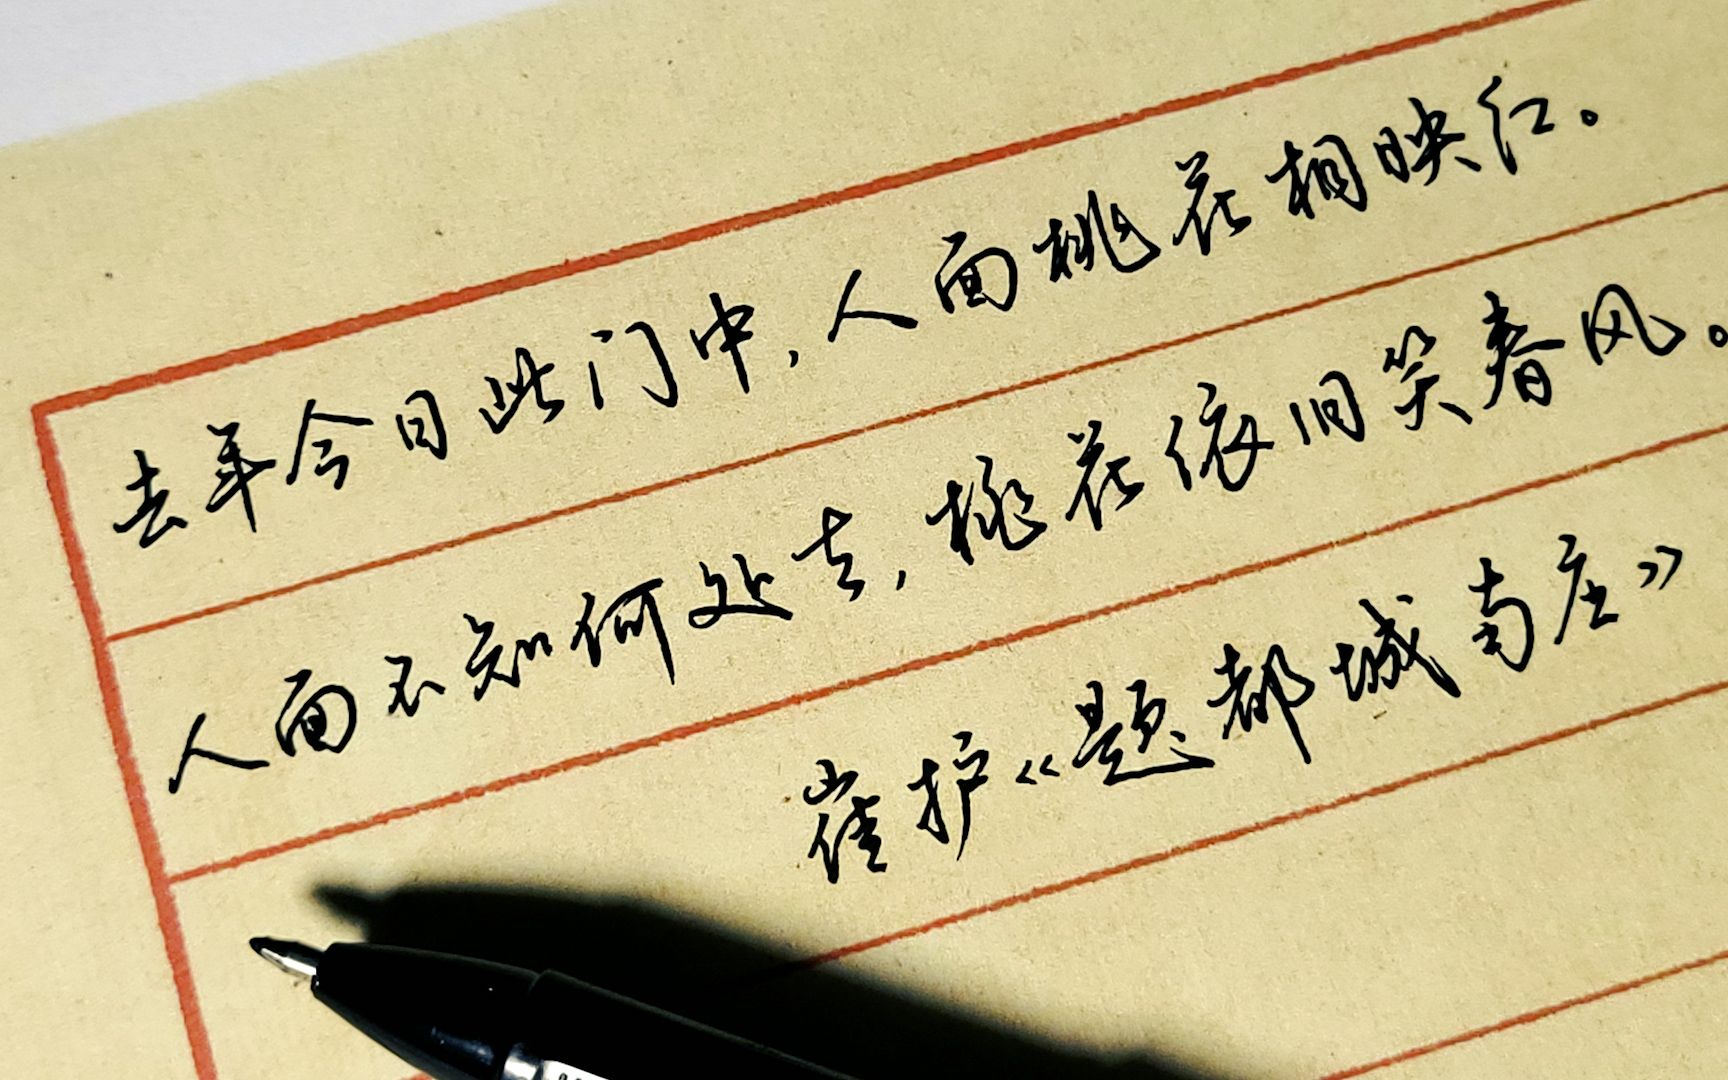 去年今日此门中，人面桃花相映红。
人面不知何处去，桃花依旧笑春风。
崔护《题都城南庄》